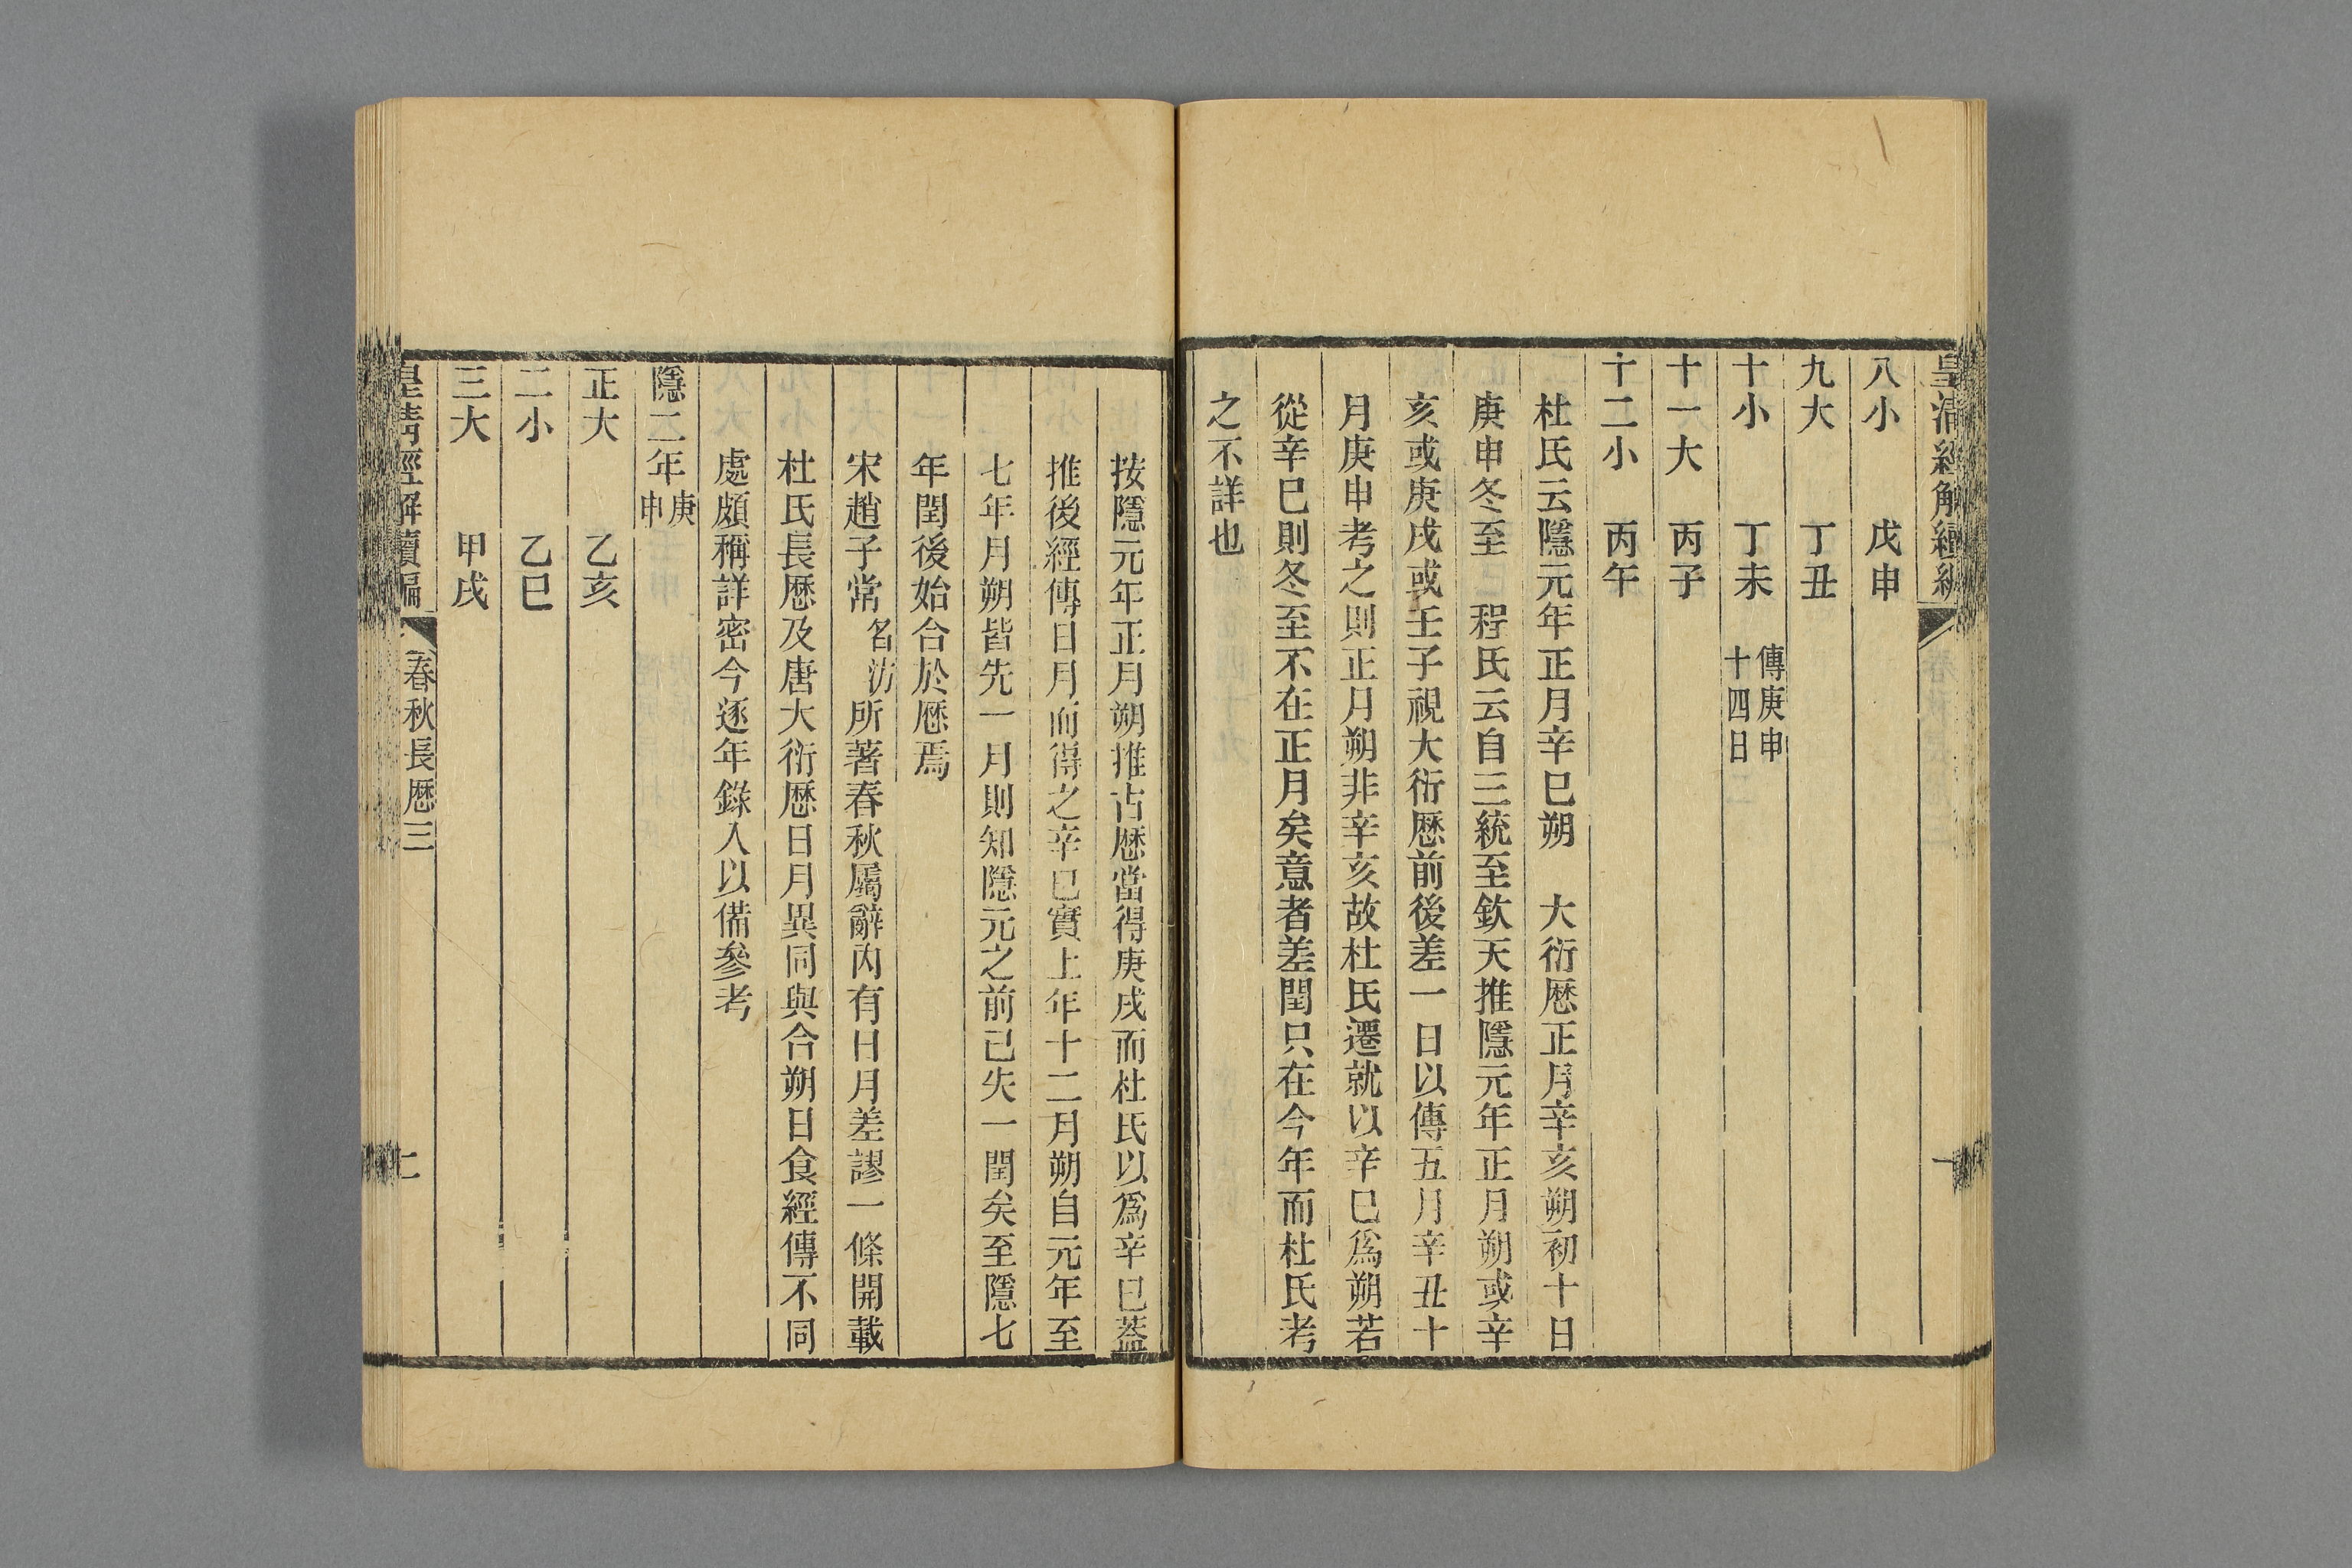 皇清經解續編
八小　戊申
九大　丁丑
十小　丁未　傳庚申
十四日
十一大　丙子
十二小　丙午
杜氏云隱元年正月辛巳朔　大衍厯正月辛亥朔初十日
庚申冬至　程氏云自三統至欽天推隱元年正月朔或辛
亥或庚戌或壬子視大衍厯前後差一日以傳五月辛丑十
月庚申考之則正月朔非辛亥故杜氏遷就以辛巳爲朔若
從辛巳則冬至不在正月矣意者差閏只在今年而杜氏考
之不詳也
按隱元年正月朔推古厯當得庚戌而杜氏以爲辛巳蓋
推後經傳日月而得之辛巳實上年十二月朔自元年至
七年月朔皆先一月則知隱元之前已失一閏矣至隱七
年閏後始合於厯焉
宋趙子常名汸所著春秋屬辭內有日月差謬一條開載
杜氏長厯及唐大衍厯日月異同與合朔日食經傳不同
處頗稱詳密今逐年錄入以備參考
隱二年庚
申
正大　乙亥
二小　乙巳
三大　甲戌
皇淸經解續編　春秋長厯三